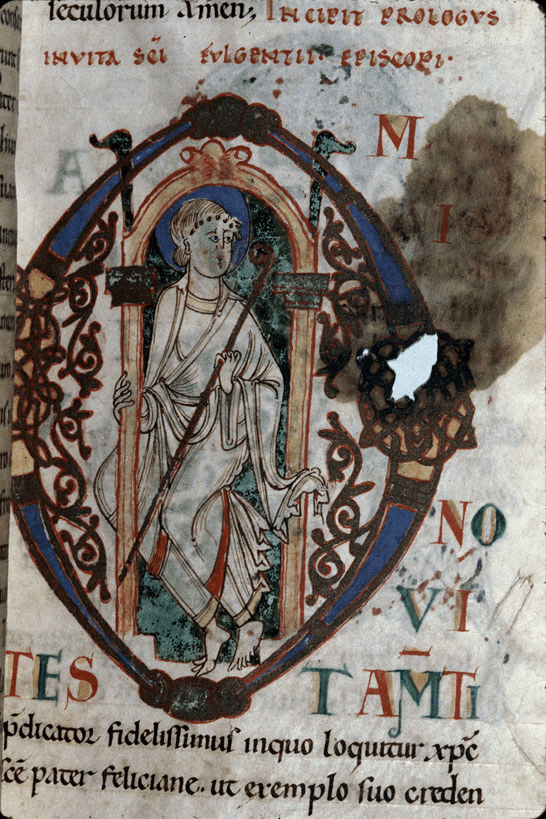 seculorum amen; INCIPIT PROLOGUS
INVITA SĒI FULGENTII · EPISCOPI ·
A O M
I
NO
VI
TES TAM̄TI
p̄dicator fidelissimus inquo loquitur xp̄c
sc̄e pater feliciane. ut exemplo suo creden